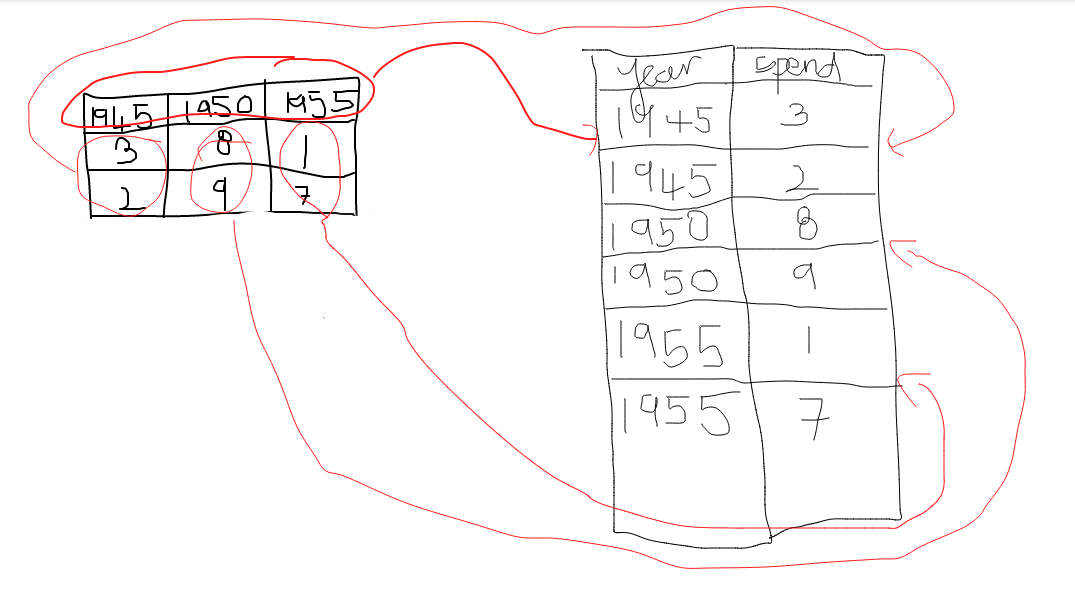 1945 1950 1955
3 8 1
2 9 7
year spend
1945 3
1945 2
1950 8
1950 9
1955 1
1955 7